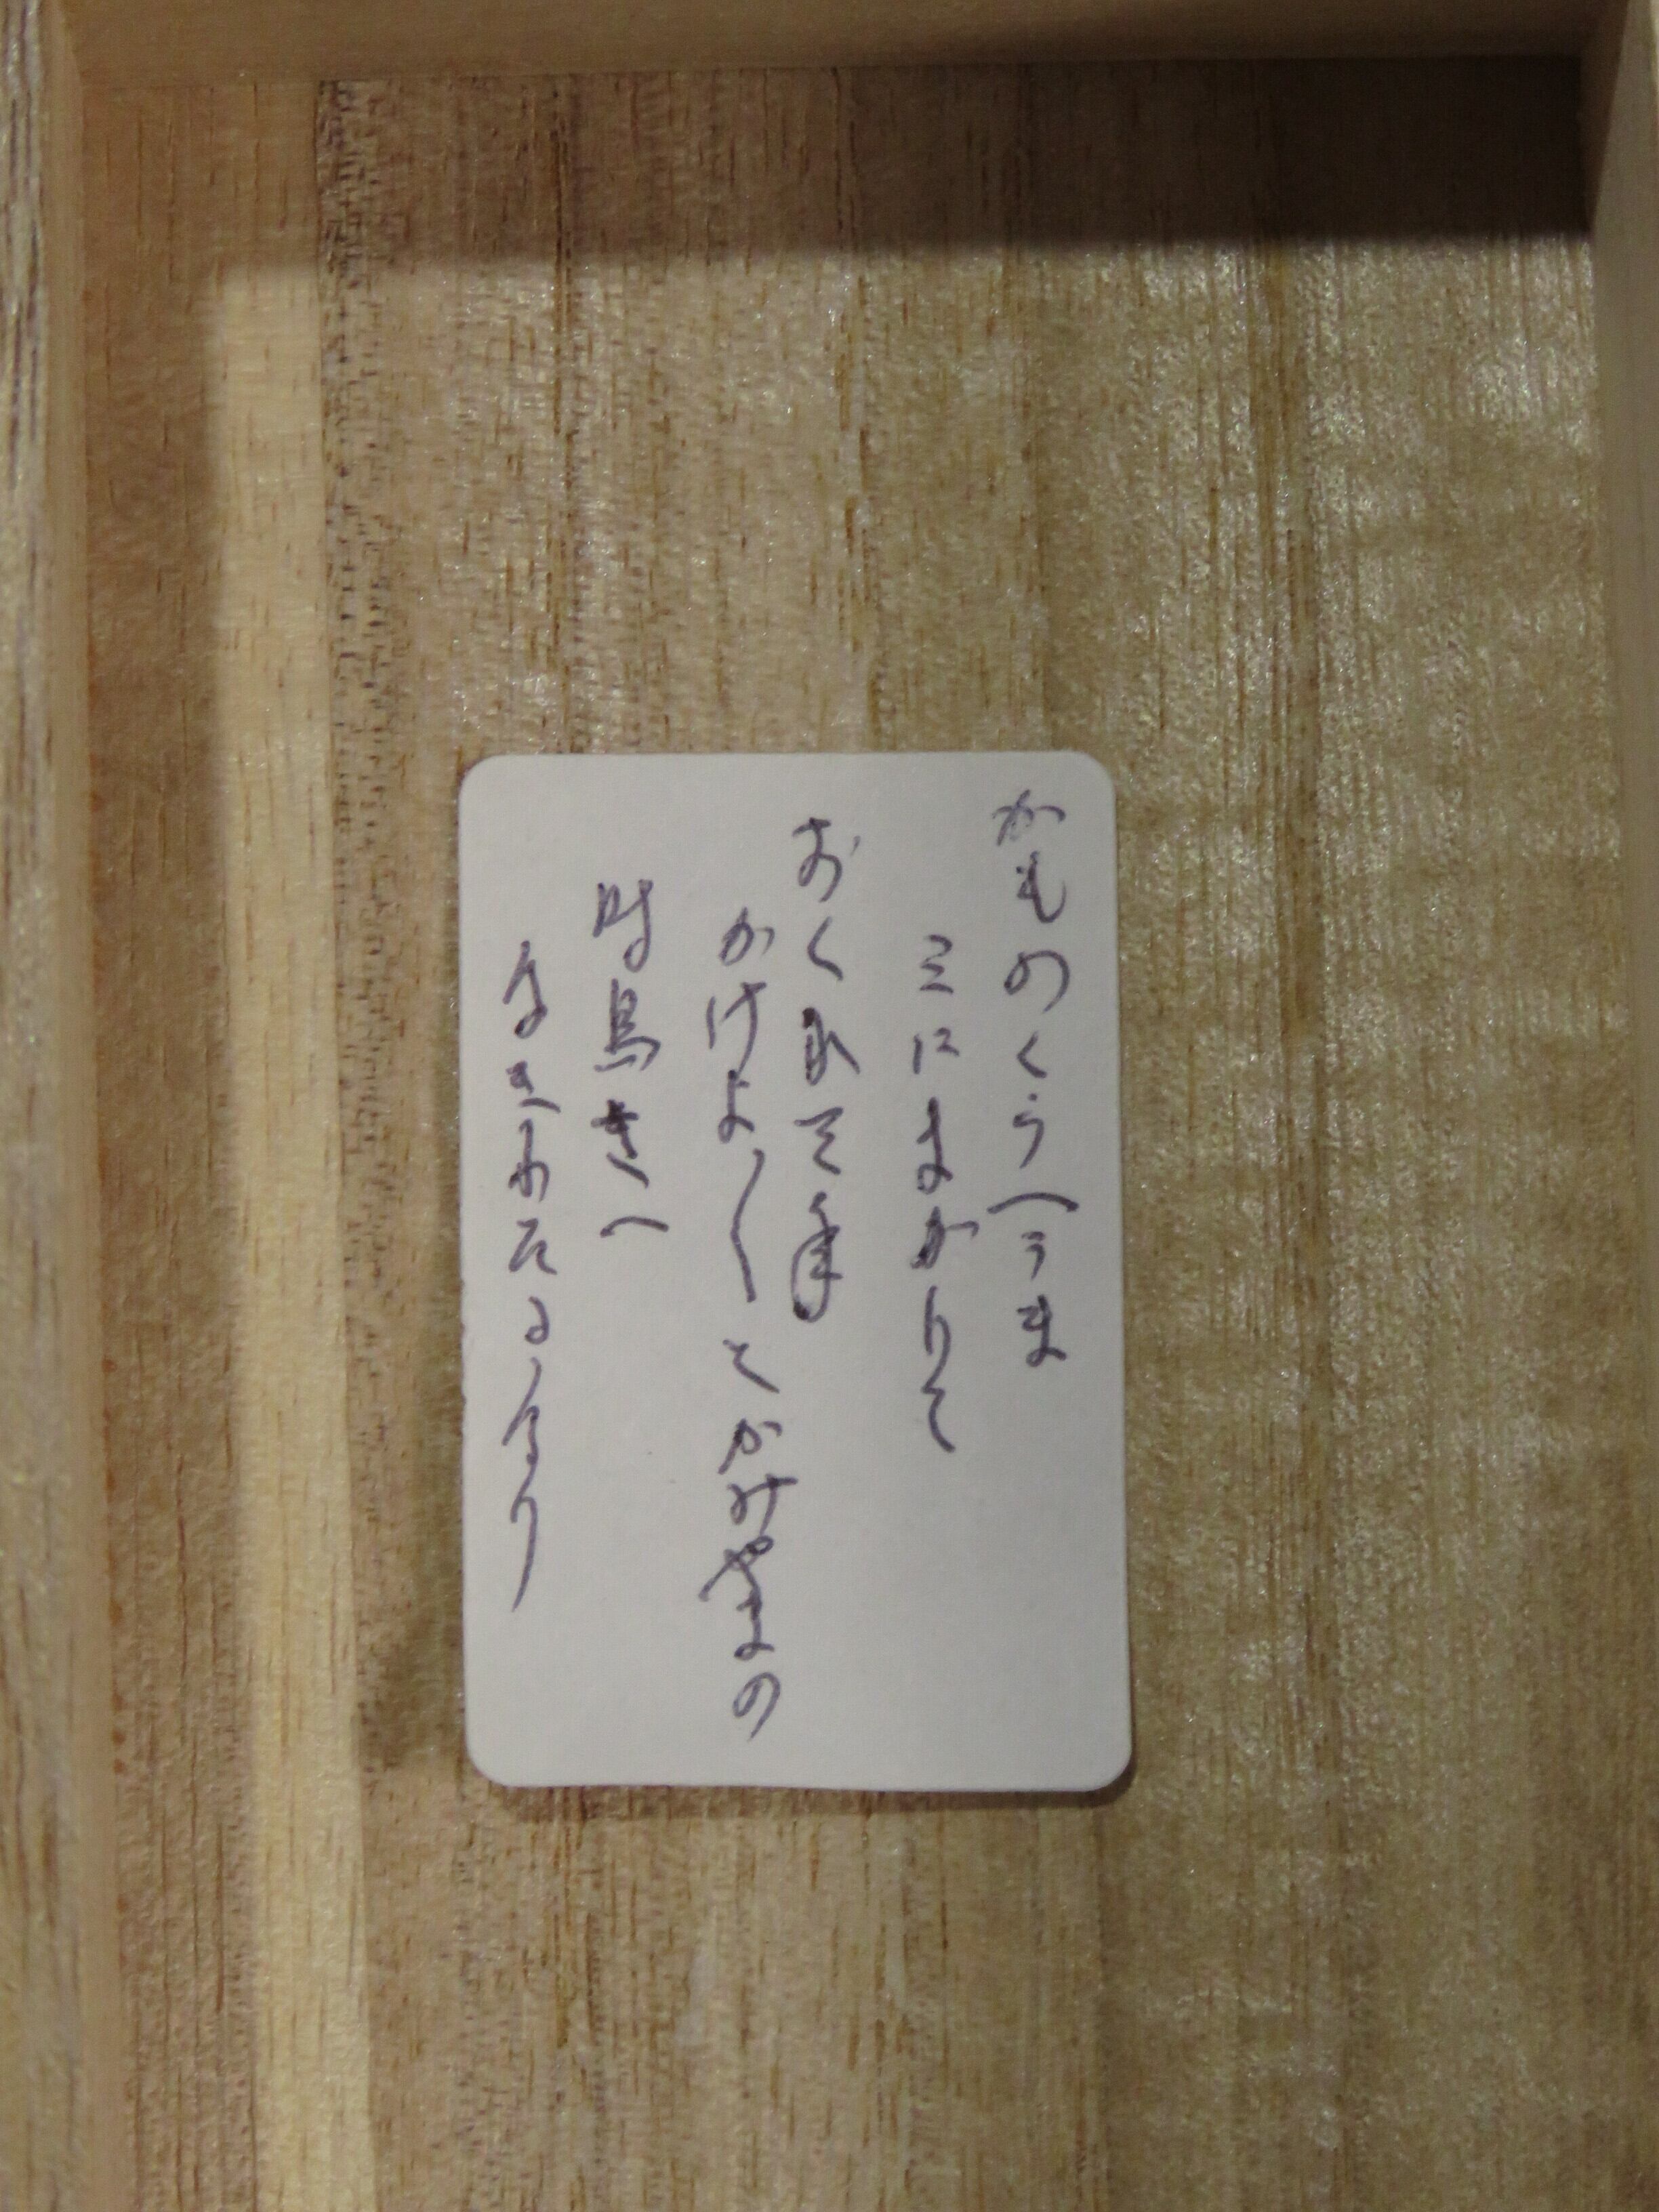 かものくらへうま
ミにまかりて
おくれて
かけよ〱とかみやまの
時鳥さへ
なきわたるなり